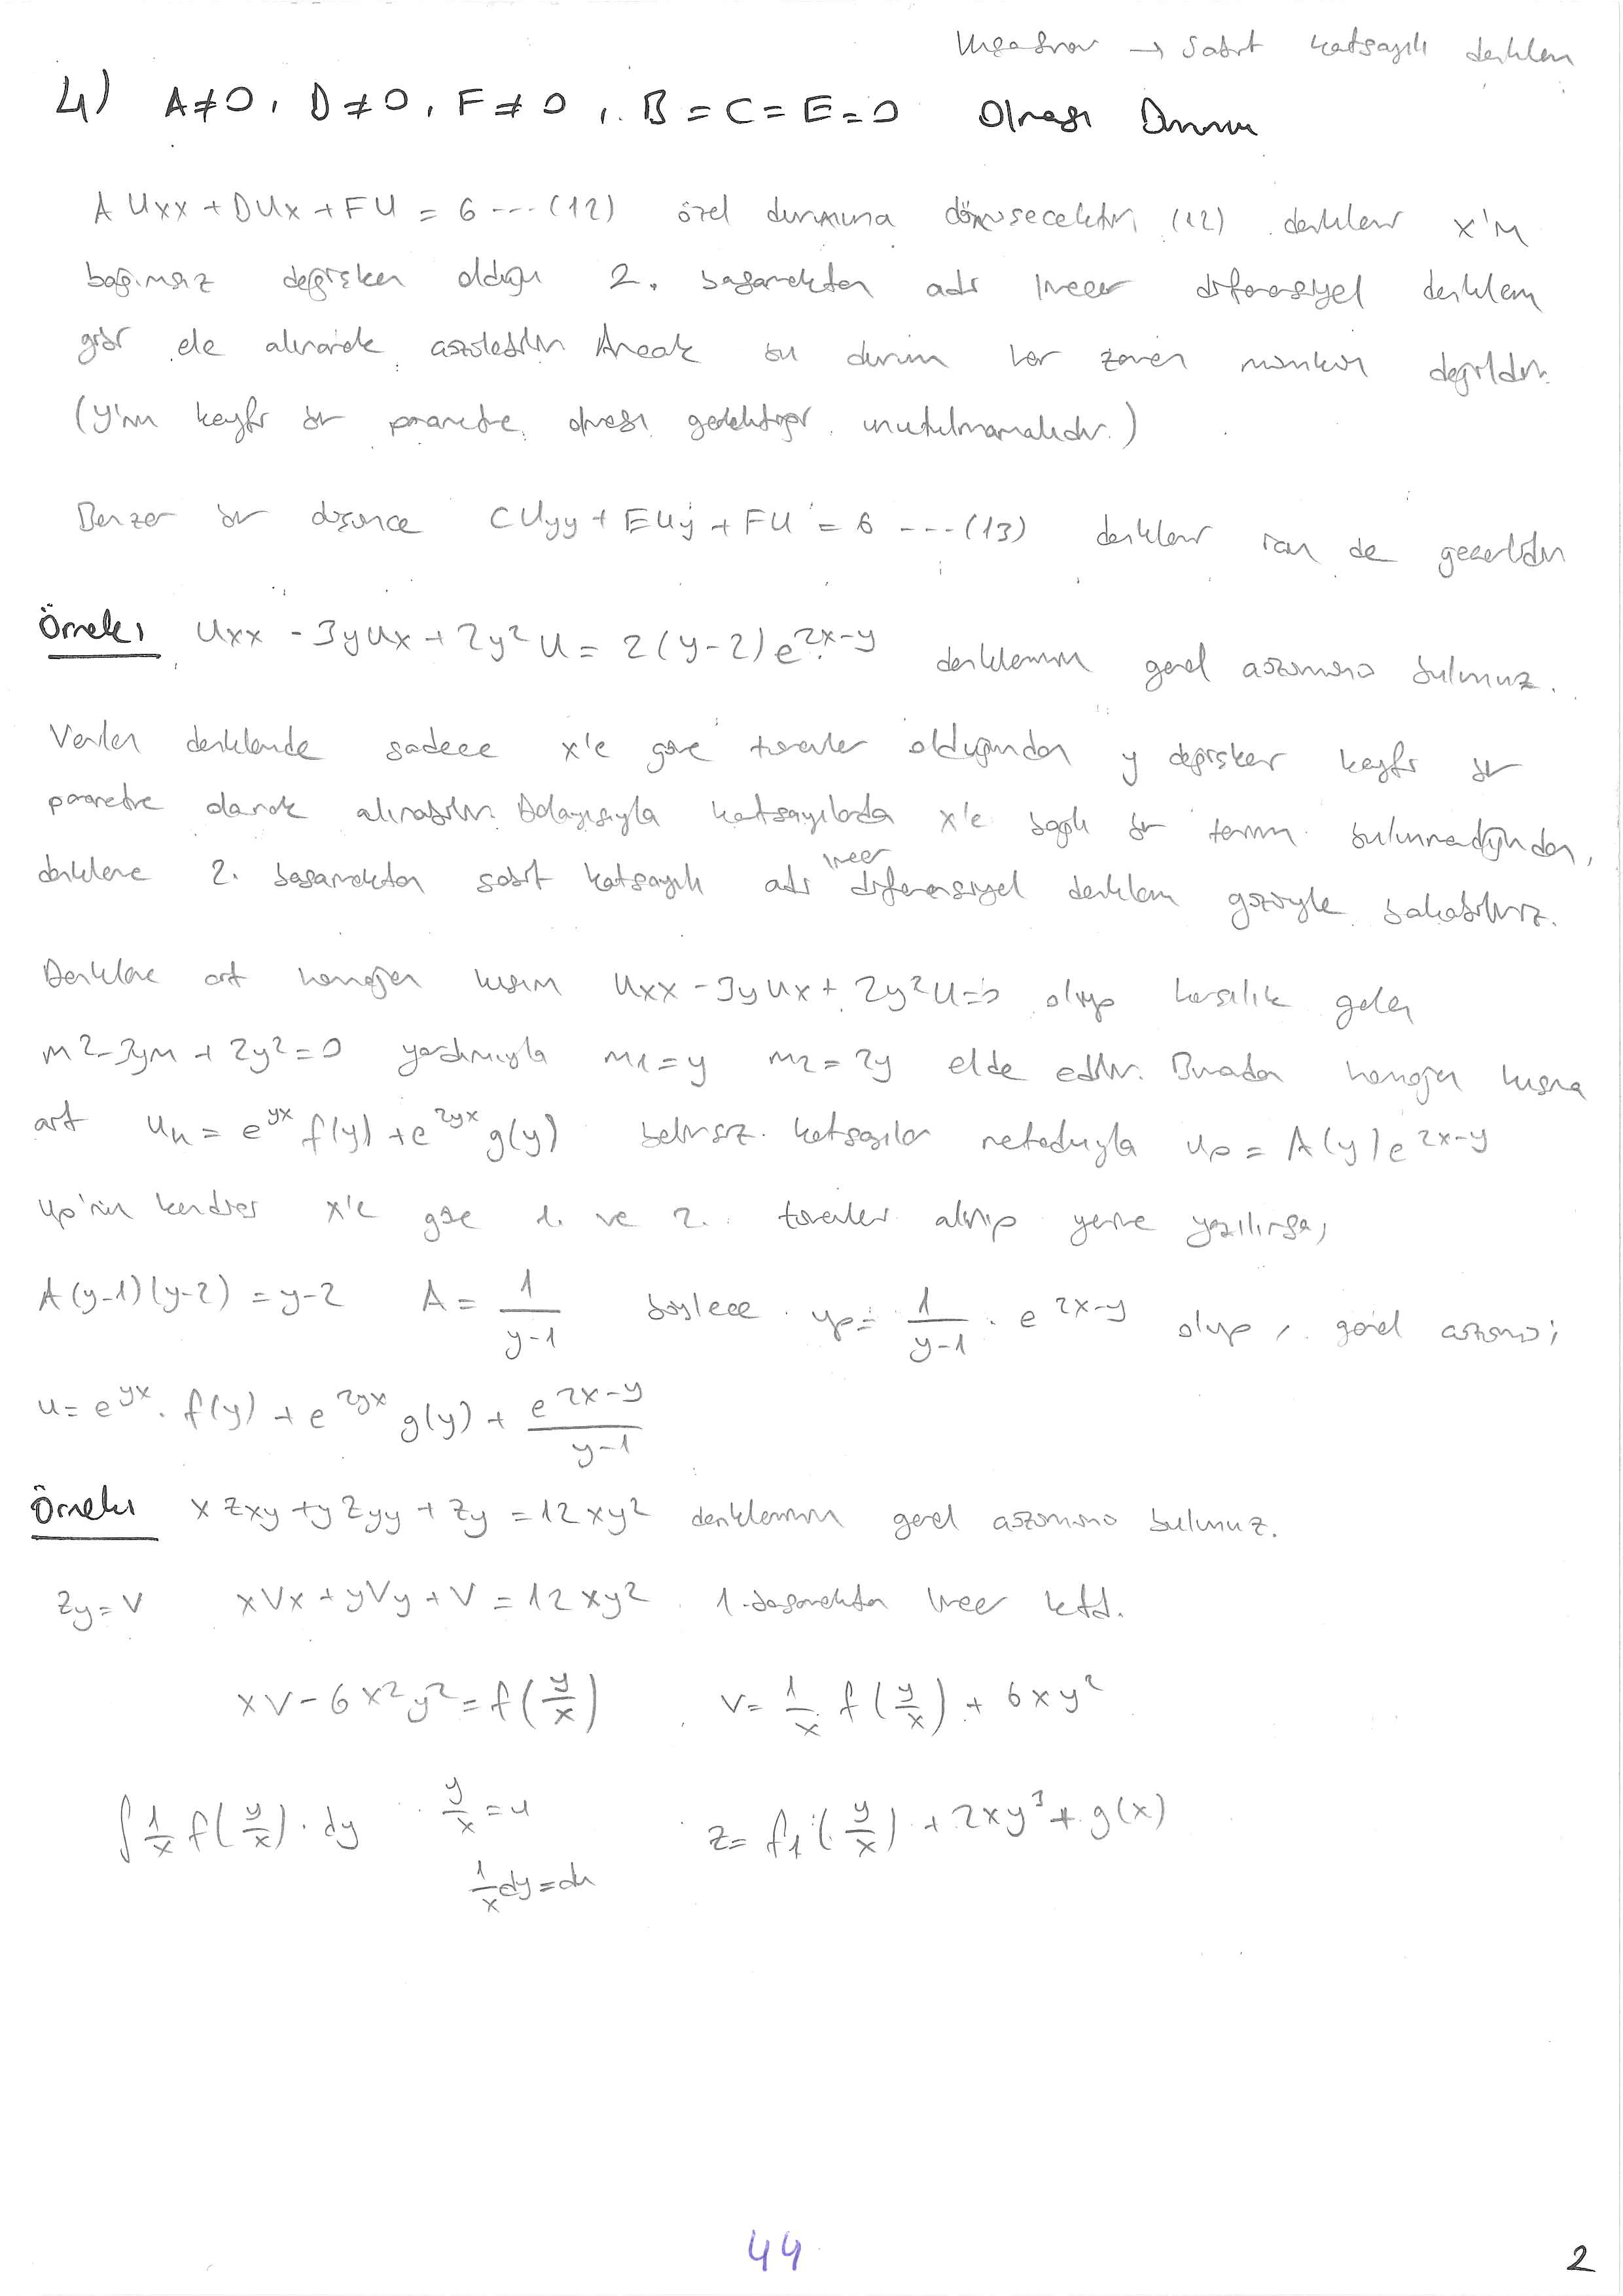 → Sabit katsayılı denklem
4) A≠0, D≠0, F≠0, B=C=E=0 Olması Durumu
A Uxx + DUx + FU = G ---(12) özel durumuna dönüşecektir. (12) denklemi x'in
bağımsız değişken olduğu 2. basamaktan adi lineer diferensiyel denklem
gibi ele alınarak çözülebilir. Ancak bu durum her zaman mümkün değildir.
(y'nin keyfi bir parametre olması gerektiği unutulmamalıdır.)
Benzer bir düşünce CUyy + EUy + FU = G ---(13) denklemi için de geçerlidir
Örnek: Uxx - 3yUx + 2y²U = 2(y-2)e^{2x-y} denkleminin genel çözümünü bulunuz.
Verilen denklemde sadece x'e göre türevler olduğundan y değişkeni keyfi bir
parametre olarak alınabilir. Dolayısıyla katsayılarda x'e bağlı bir terim bulunmadığından,
denkleme 2. basamaktan sabit katsayılı adi lineer diferensiyel denklem gözüyle bakabiliriz.
Denkleme ait homojen kısım Uxx - 3yUx + 2y²U=0 olup karşılık gelen
m²-3ym + 2y²=0 yardımıyla m₁=y m₂=2y elde edilir. Buradan homojen kısma
ait u_h = e^{yx} f(y) + e^{2yx} g(y) belirsiz katsayılar metoduyla u_p = A(y)e^{2x-y}
u_p'nin kendisi x'e göre 1. ve 2. türevler alınıp yerine yazılırsa,
A(y-1)(y-2) = y-2 A = 1/(y-1) böylece y_p = 1/(y-1) . e^{2x-y} olup, genel çözümü;
u = e^{yx} . f(y) + e^{2yx} g(y) + e^{2x-y}/(y-1)
Örnek: x Zxy + y Zyy + Zy = 12xy² denkleminin genel çözümünü bulunuz.
Zy = V xVx + yVy + V = 12xy² 1. basamaktan lineer ktd.
xV - 6x²y² = f(y/x) V = 1/x f(y/x) + 6xy²
∫ 1/x f(y/x) . dy y/x = u z = f₁(y/x) + 2xy³ + g(x)
1/x dy = du
44
2